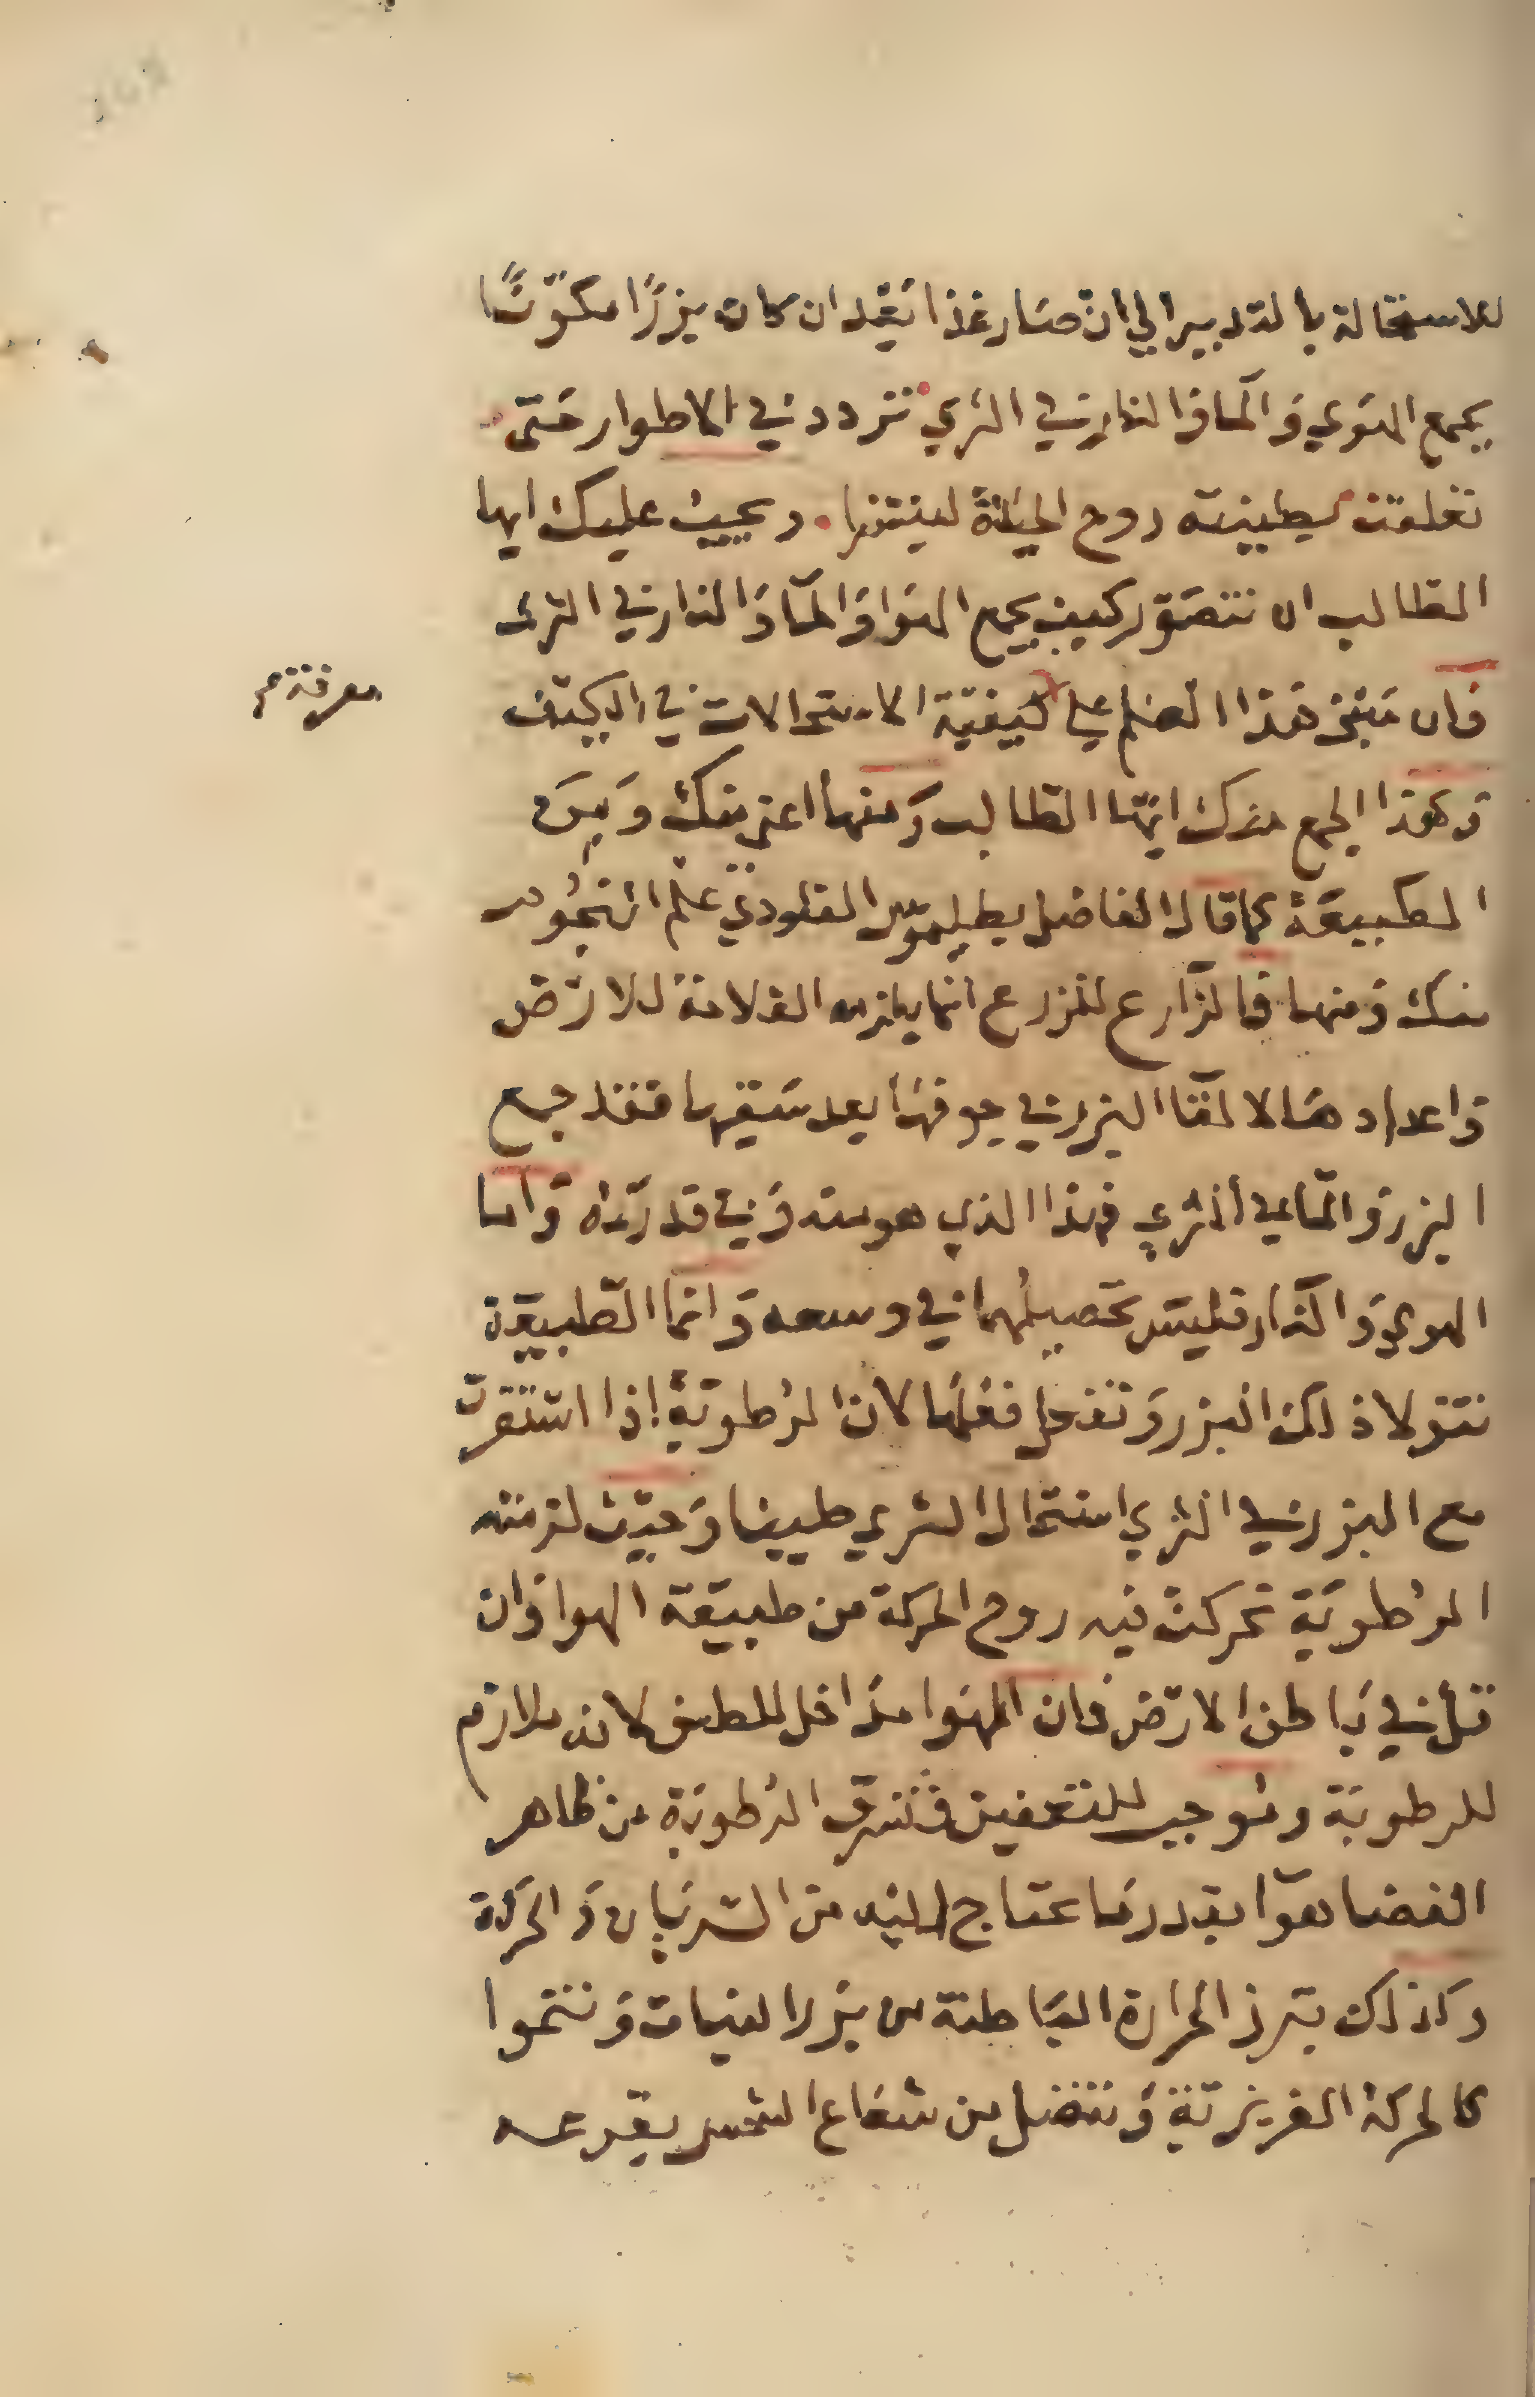 للاستحالة بالتدبير الي ان صار غذا بعد ان كان بزرًا مكوّنًا
بجمع الهوي والما والنار في الثري تتردد في الاطوار حتى
تعلقت بطينته روح الحياة لينتها. ويجيب عليك ايها
الطالب ان تتصور كيف يجمع الهوا والما والنار في الثرى
فان مبنى هذا العلم علي كيفية الاستحالات في الكيف
معرفة
وهذا الجمع منك ايها الطالب ومنها اعني منك ومن
الطبيعة كما قال الفاضل بطليموس القلودي علم النجوم
منك ومنها فالزارع للزرع انما يلزمه الفلاحة للارض
واعدادها لالقا البزر في جوفها بعد سقيها فقد جمع
البزر والما في الثري فهذا الذي هو منه وفي قدرته واما
الهوي والنار فليس تحصيلهما في وسعه وانما الطبيعة
تتولا ذلك البزر وتفعل فعلها لان الرطوبة إذا استقرت
مع البزر في الثري استحال الثري طينا وحيث لزمته
الرطوبة تحركت فيه روح الحركة من طبيعة الهوا وان
قل في باطن الارض فان الهوا مداخل للطين لانه ملازم
للرطوبة وموجب للتعفين فتسرق الرطوبة من ظاهر
الفضا هوآ بقدر ما تحتاج اليه من السريان والحركة
وكذلك تبرز الحرارة الباطنة من بزر النبات وتنموا
كالحركة الغريزية وتتصل من شعاع الشمس بقرعه